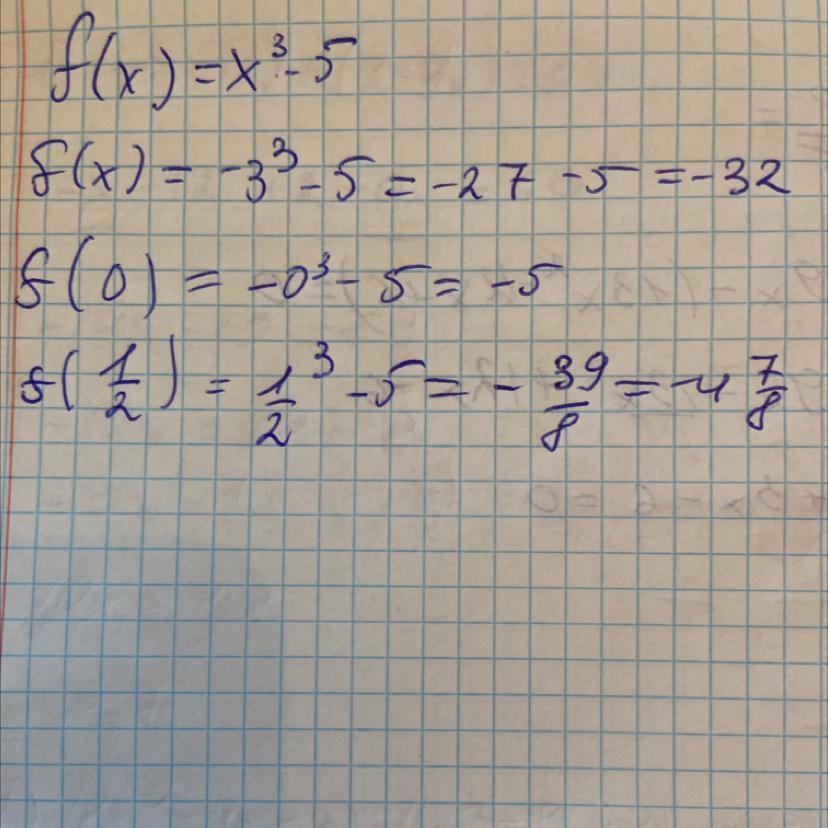 f(x) = x³ - 5
f(x) = -3³ - 5 = -27 - 5 = -32
f(0) = -0³ - 5 = -5
f(1/2) = 1/2³ - 5 = - 39/8 = -4 7/8